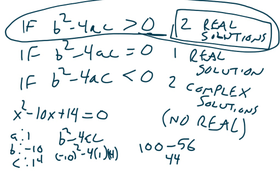 IF b²-4ac > 0 2 REAL SOLUTIONS
IF b²-4ac = 0 1 REAL SOLUTION
IF b²-4ac < 0 2 COMPLEX SOLUTIONS
(NO REAL)
x²-10x+14=0
a:1 b²-4ac 100-56
b:-10 (-10)²-4(1)(14) 44
c:14